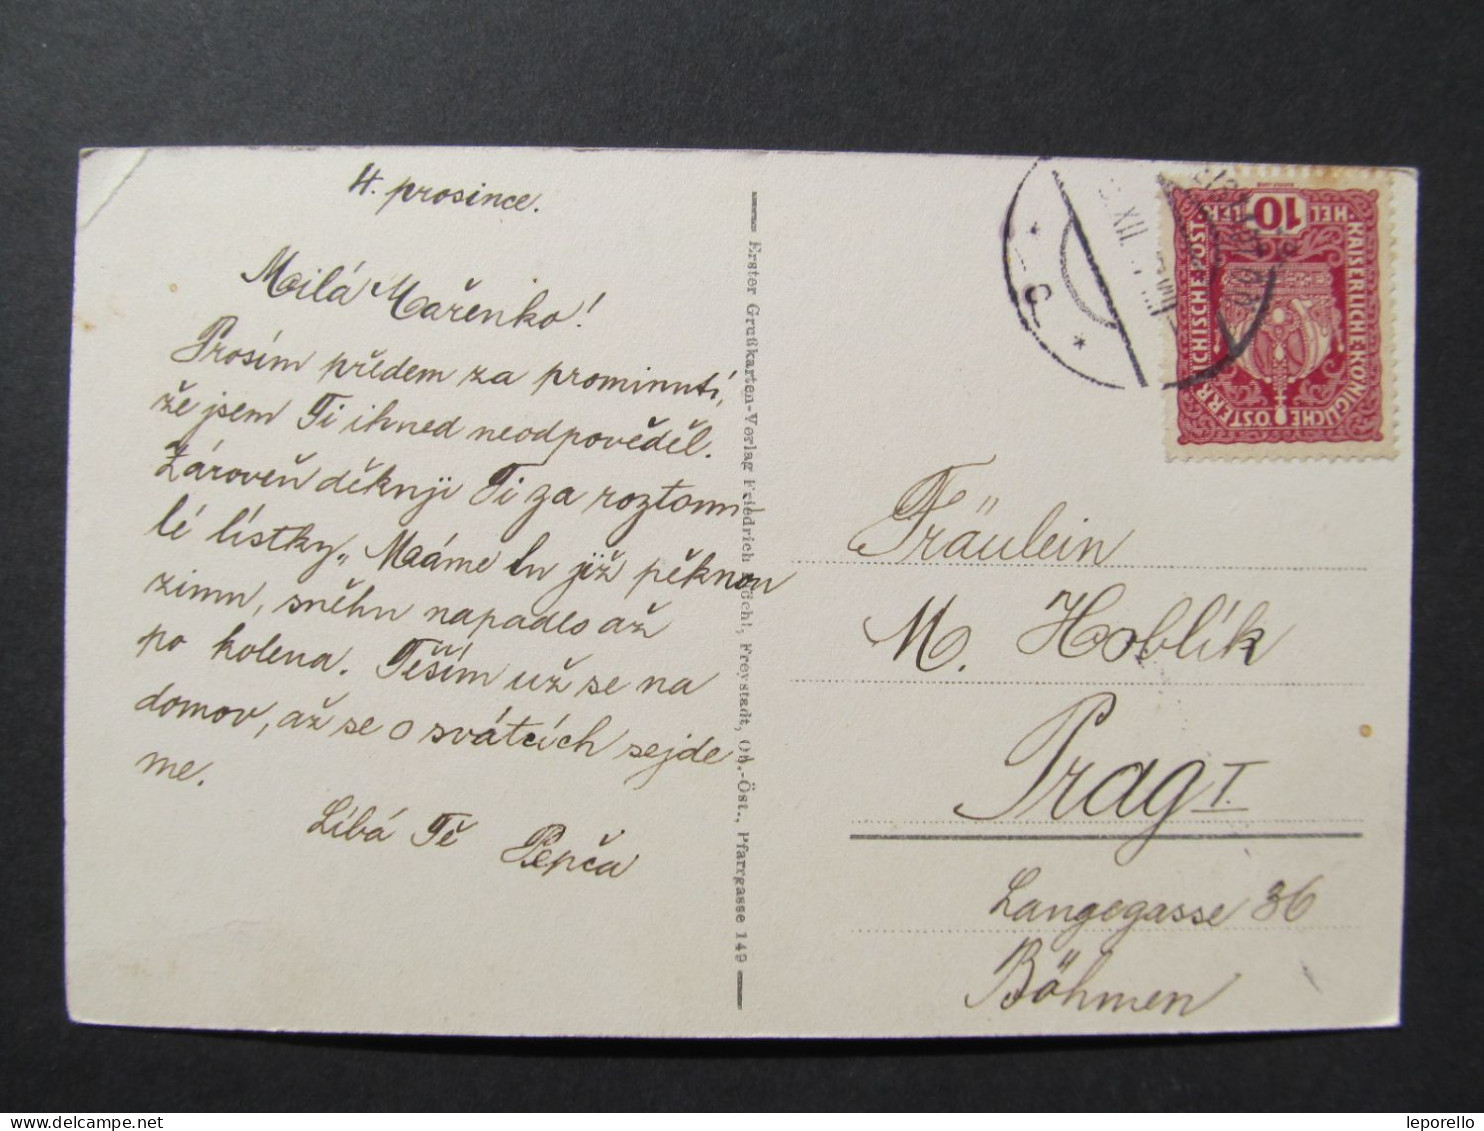 4. prosince.
Milá Mařenko!
Prosím předem za prominutí,
že jsem Ti ihned neodpověděl.
Zároveň děkuji Ti za roztomi-
lé lístky„ Maáme tu již pěknou
zimu, sněhu napadlo až
po kolena. Těším už se na
domov, až se o svátcích sejde
me.
Líbá Tě Pepča
Erster Grußkarten-Verlag Friedrich Freystadt, Ob.-Öst., Pfarrgasse 149
KAISERLICHE KÖNIGLICHE ÖSTERREICHISCHE POST
HEL 10 LER
XII
c
Fräulein
M. Hoblík
Prag I.
Langegasse 36
Böhmen
leporello